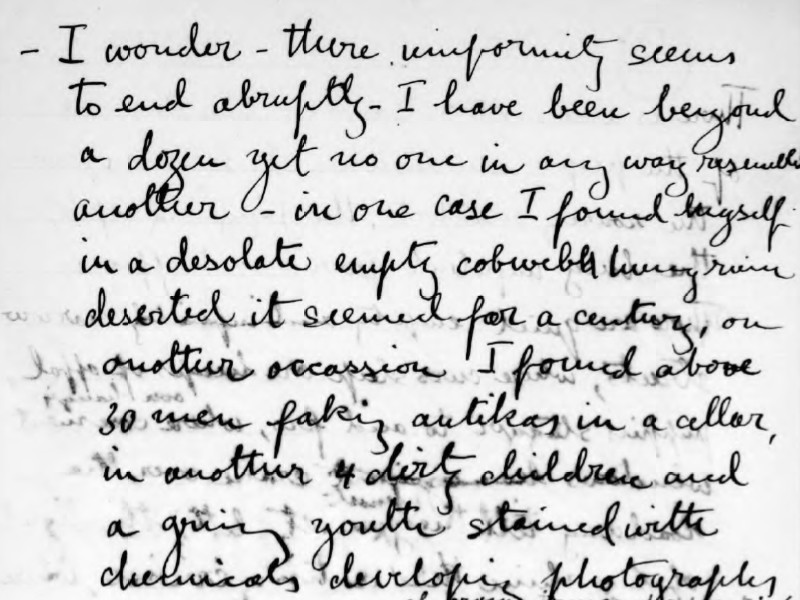 - I wonder - there uniformity seems
to end abruptly - I have been beyond
a dozen yet no one in any way resembles
another - in one case I found myself
in a desolate empty cobwebb hung ruin
deserted it seemed for a century, on
another occassion I found above
30 men faking antikas in a cellar,
in another 4 dirty children and
a griny youth stained with
chemicals developing photographs,